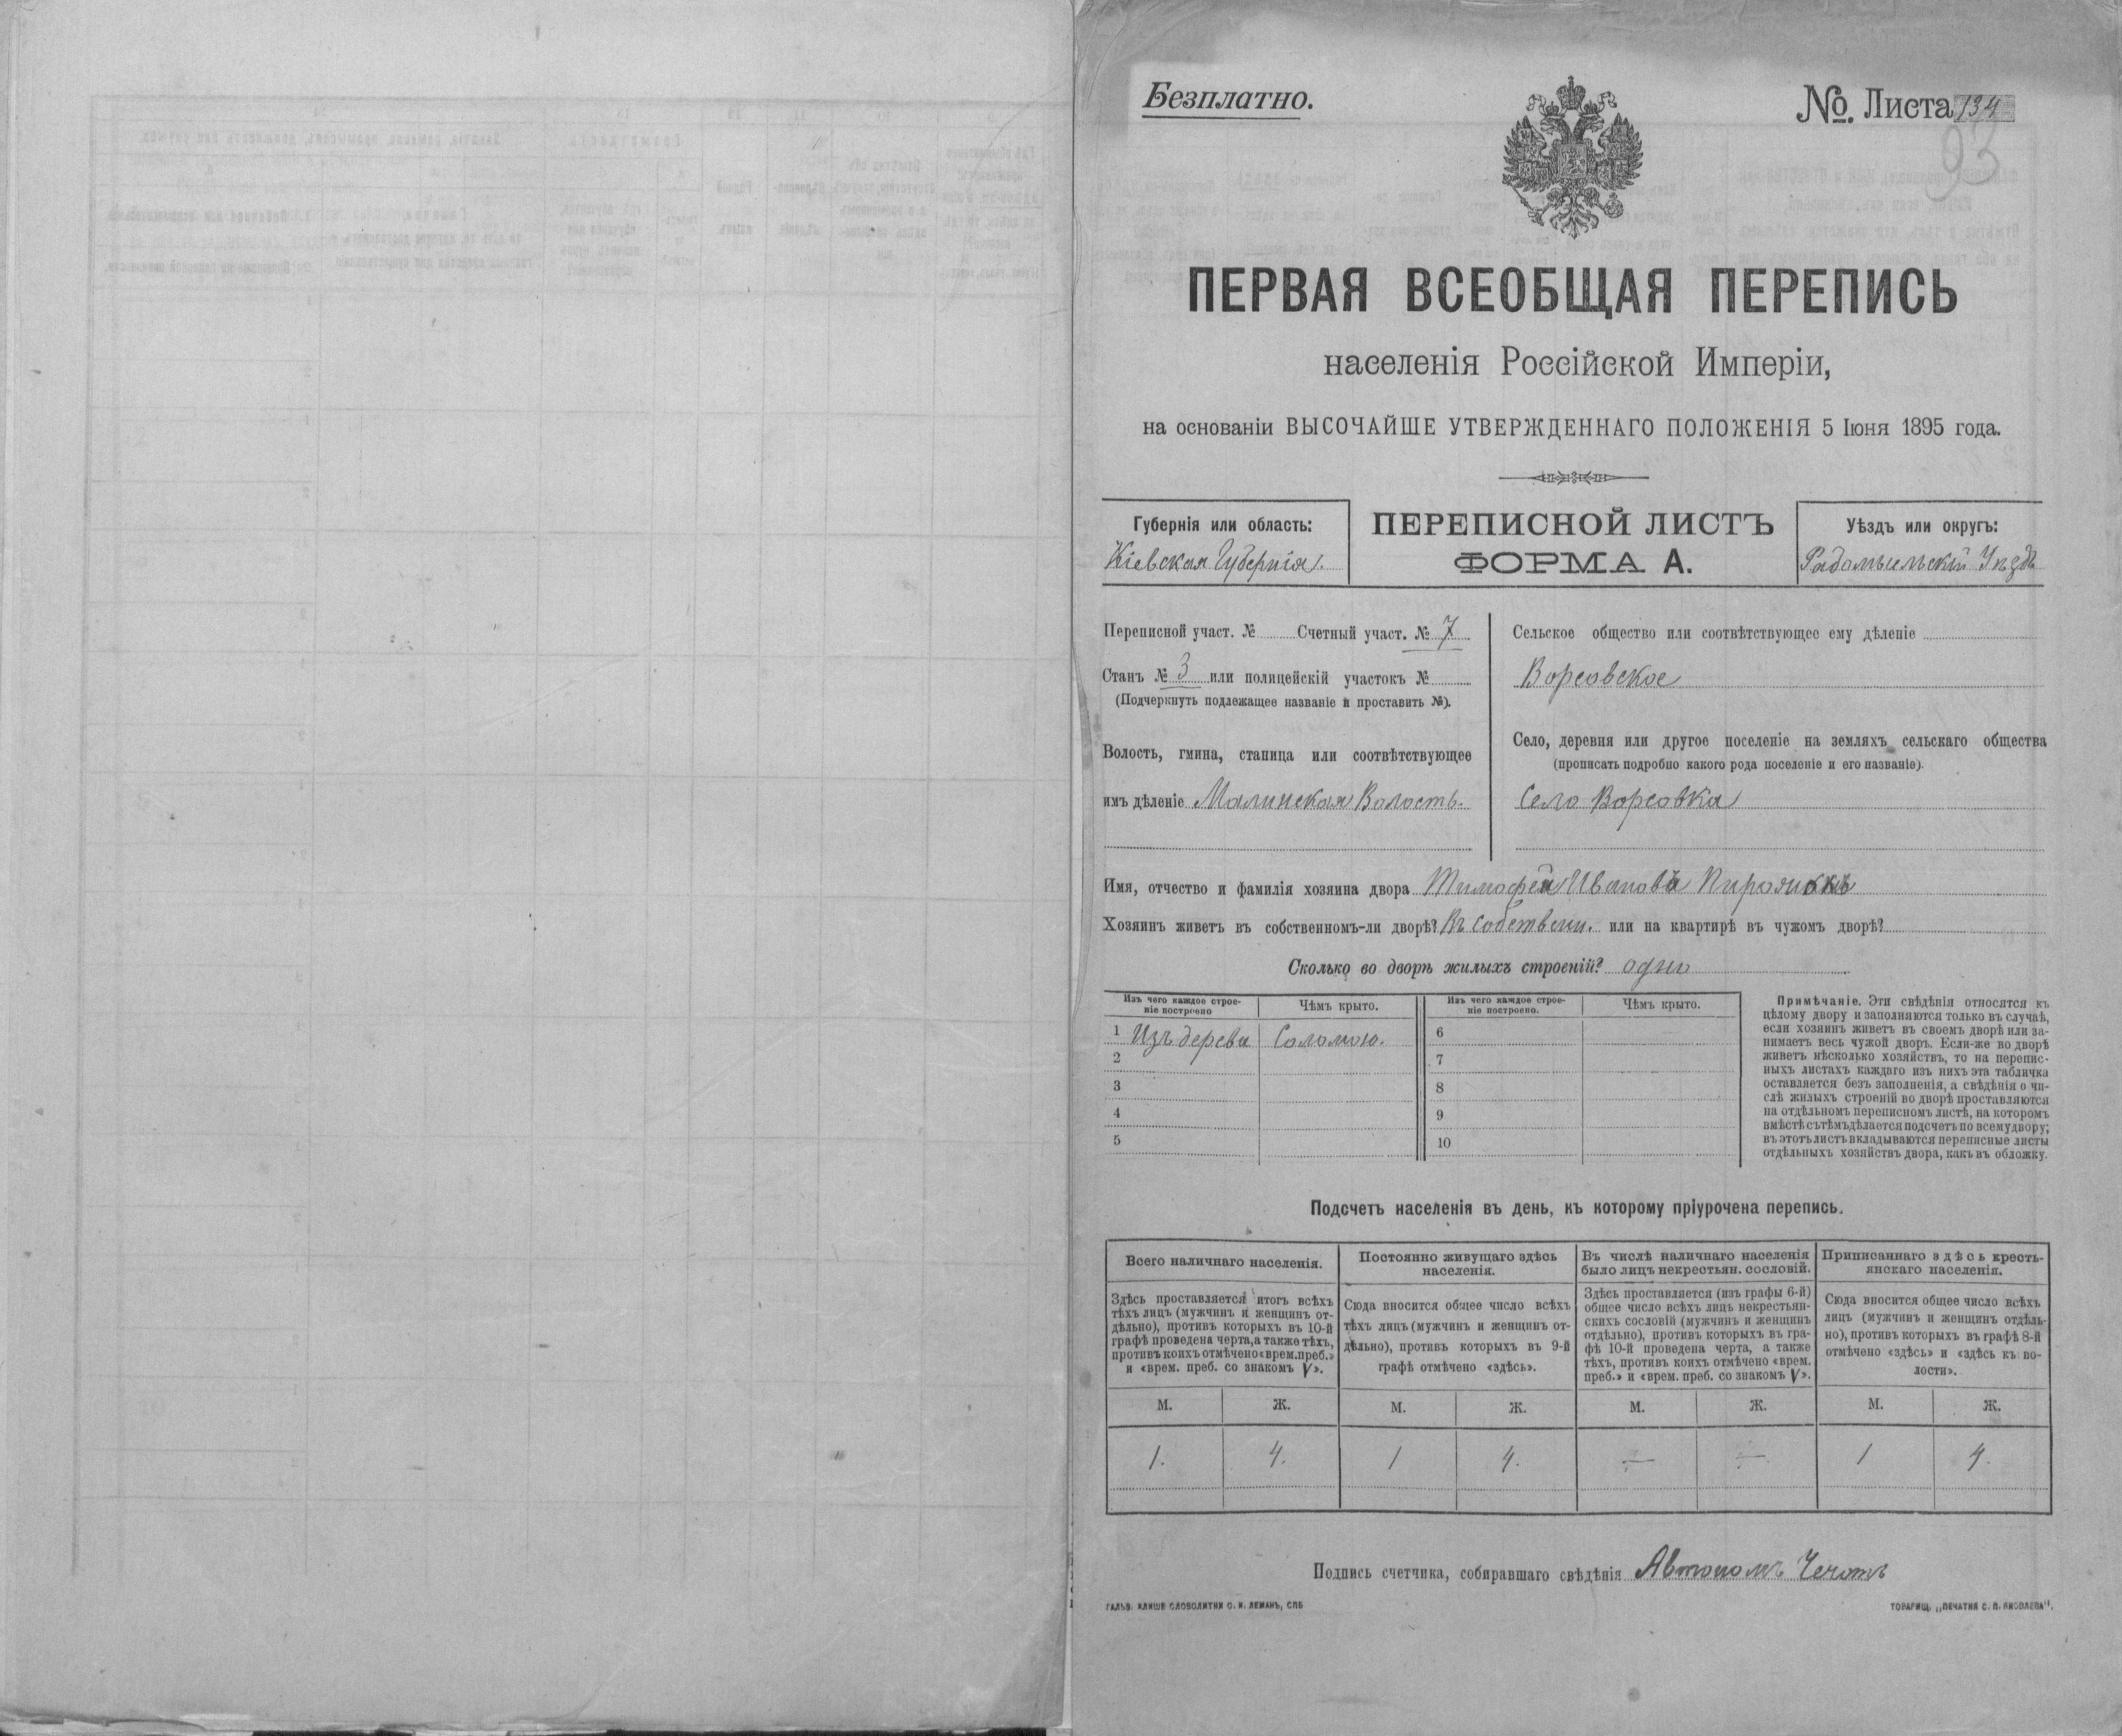 Безплатно.
№. Листа 134
93
ПЕРВАЯ ВСЕОБЩАЯ ПЕРЕПИСЬ
населенія Россійской Имперіи,
на основаніи ВЫСОЧАЙШЕ УТВЕРЖДЕННАГО ПОЛОЖЕНІЯ 5 Іюня 1895 года.
Губернія или область:
Кіевская Губернія.
ПЕРЕПИСНОЙ ЛИСТЪ
ФОРМА А.
Уѣздъ или округъ:
Радомысльскій Уѣздъ
Переписной участ. № Счетный участ. № 7
Станъ № 3 или полицейскій участокъ №
(Подчеркнуть подлежащее названіе и проставить №).
Волость, гмина, станица или соотвѣтствующее
имъ дѣленіе Малинская Волость.
Сельское общество или соотвѣтствующее ему дѣленіе
Ворсовское
Село, деревня или другое поселеніе на земляхъ сельскаго общества
(прописать подробно какого рода поселеніе и его названіе).
Село Ворсовка
Имя, отчество и фамилія хозяина двора Тимофей Ивановъ
Хозяинъ живетъ въ собственномъ-ли дворѣ? Въ собственн. или на квартирѣ въ чужомъ дворѣ?
Сколько во дворѣ жилыхъ строеній? одно
Изъ чего каждое строе-
ніе построено
Чѣмъ крыто.
1 Изъ дерева Соломою.
2
3
4
5
Изъ чего каждое строе-
ніе построено.
Чѣмъ крыто.
6
7
8
9
10
Примѣчаніе. Эти свѣдѣнія относятся къ
цѣлому двору и заполняются только въ случаѣ,
если хозяинъ живетъ въ своемъ дворѣ или за-
нимаетъ весь чужой дворъ. Если-же во дворѣ
живетъ нѣсколько хозяйствъ, то на перепис-
ныхъ листахъ каждаго изъ нихъ эта табличка
оставляется безъ заполненія, а свѣдѣнія о чи-
слѣ жилыхъ строеній во дворѣ проставляются
на отдѣльномъ переписномъ листѣ, на которомъ
вмѣстѣ съ тѣмъ дѣлается подсчетъ по всему двору;
въ этотъ листъ вкладываются переписные листы
отдѣльныхъ хозяйствъ двора, какъ въ обложку.
Подсчетъ населенія въ день, къ которому пріурочена перепись.
Всего наличнаго населенія.
Здѣсь проставляется итогъ всѣхъ
тѣхъ лицъ (мужчинъ и женщинъ от-
дѣльно), противъ которыхъ въ 10-й
графѣ проведена черта, а также тѣхъ,
противъ коихъ отмѣчено «врем. преб.»
и «врем. преб. со знакомъ V».
Постоянно живущаго здѣсь
населенія.
Сюда вносится общее число всѣхъ
тѣхъ лицъ (мужчинъ и женщинъ от-
дѣльно), противъ которыхъ въ 9-й
графѣ отмѣчено «здѣсь».
Въ числѣ наличнаго населенія
было лицъ некрестьян. сословій.
Здѣсь проставляется (изъ графы 6-й)
общее число всѣхъ лицъ некрестьян-
скихъ сословій (мужчинъ и женщинъ
отдѣльно), противъ которыхъ въ гра-
фѣ 10-й проведена черта, а также
тѣхъ, противъ коихъ отмѣчено «врем.
преб.» и «врем. преб. со знакомъ V».
Приписаннаго здѣсь кресть-
янскаго населенія.
Сюда вносится общее число всѣхъ
лицъ (мужчинъ и женщинъ отдѣль-
но), противъ которыхъ въ графѣ 8-й
отмѣчено «здѣсь» и «здѣсь къ во-
лости».
М. Ж. М. Ж. М. Ж. М. Ж.
1. 4. 1 4. — — 1 4.
Подпись счетчика, собиравшаго свѣдѣнія Автономъ Чечотъ
ГАЛЬВ. КЛИШЕ СЛОВОЛИТНИ О. И. ЛЕМАНЪ, СПБ
ТОВАРИЩ. „ПЕЧАТНЯ С. П. ЯКОВЛЕВА".